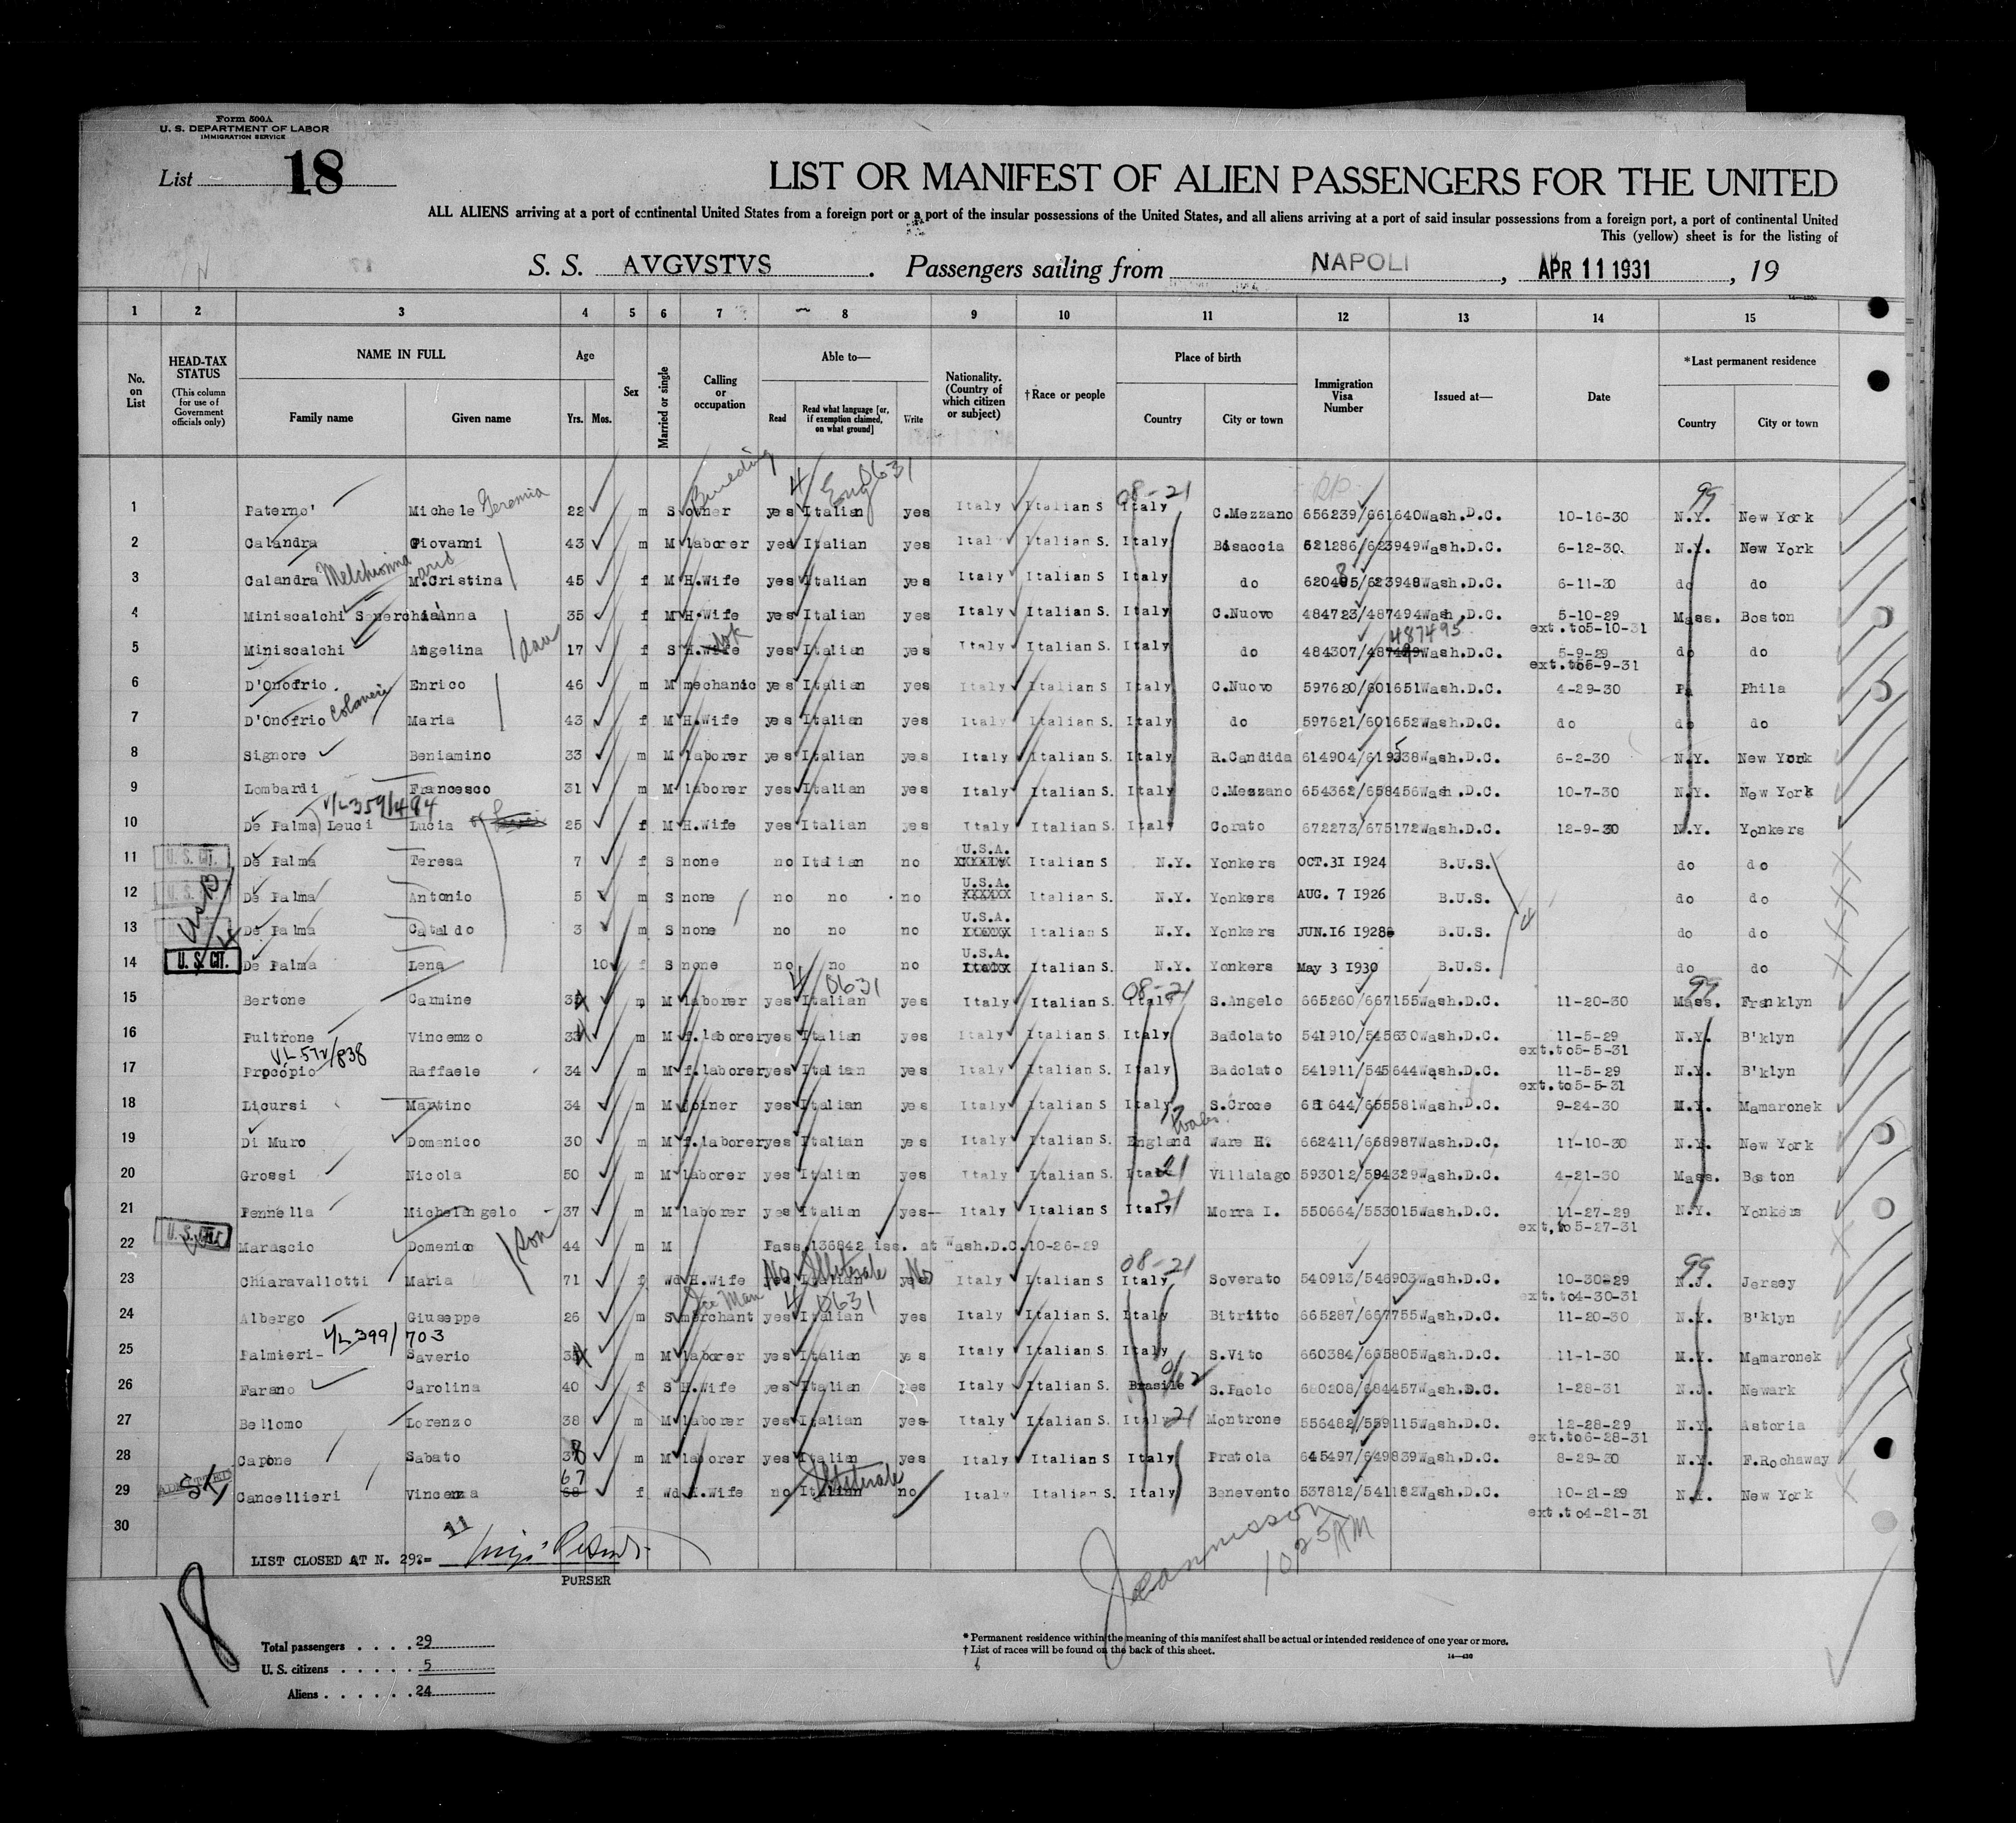 Form 500A
U. S. DEPARTMENT OF LABOR
IMMIGRATION SERVICE
List 18
LIST OR MANIFEST OF ALIEN PASSENGERS FOR THE UNITED
ALL ALIENS arriving at a port of continental United States from a foreign port or a port of the insular possessions of the United States, and all aliens arriving at a port of said insular possessions from a foreign port, a port of continental United
This (yellow) sheet is for the listing of
S. S. AVGVSTVS . Passengers sailing from NAPOLI , APR 11 1931 , 19
1 2 3 4 5 6 7 8 9 10 11 12 13 14 15
No. on List
HEAD-TAX STATUS (This column for use of Government officials only)
NAME IN FULL Family name Given name
Age Yrs. Mos.
Sex
Married or single
Calling or occupation
Able to— Read Read what language [or, if exemption claimed, on what ground] Write
Nationality. (Country of which citizen or subject)
†Race or people
Place of birth Country City or town
Immigration Visa Number
Issued at—
Date
*Last permanent residence Country City or town
Bunedin 4 Eng 0631 08-21 99
1 Paterno' Michele Geremia 22 m S owner yes Italian yes Italy Italian S Italy C.Mezzano 656239/661640 Wash.D.C. 10-16-30 N.Y. New York
2 Calandra Giovanni 43 m M laborer yes Italian yes Ital Italian S. Italy Bisaccia 521286/623949 Wash.D.C. 6-12-30 N.Y. New York
3 Calandra Melchionna M.Cristina 45 f M H.Wife yes Italian yes Italy Italian S Italy do 620485/623948 Wash.D.C. 6-11-30 do do
4 Miniscalchi Anna 35 f M H.Wife yes Italian yes Italy Italian S. Italy C.Nuovo 484723/487494 Wash.D.C. 5-10-29 Mass. Boston
ext.to5-10-31
487495
5 Miniscalchi Angelina dau 17 f S yes Italian yes Italy Italian S. Italy do 484307/ Wash.D.C. 5-9-29 do do
ext.to5-9-31
6 D'Onofrio Enrico 46 m M mechanic yes Italian yes Italy Italian S Italy C.Nuovo 597620/601651 Wash.D.C. 4-29-30 Pa Phila
7 D'Onofrio Colaneri Maria 43 f M H.Wife yes Italian yes Italy Italian S. Italy do 597621/601652 Wash.D.C. do do do
8 Signore Beniamino 33 m M laborer yes Italian yes Italy Italian S. Italy R.Candida 614904/619538 Wash.D.C. 6-2-30 N.Y. New York
9 Lombardi Francesco 31 m M laborer yes Italian yes Italy Italian S. Italy C.Mezzano 654362/658456 Wash.D.C. 10-7-30 N.Y. New York
V/L 359/494
10 De Palma Leuci Lucia 25 f M H.Wife yes Italian yes Italy Italian S. Italy Corato 672273/675172 Wash.D.C. 12-9-30 N.Y. Yonkers
11 U. S. CIT. De Palma Teresa 7 f S none no Italian no U.S.A. Italian S N.Y. Yonkers OCT.31 1924 B.U.S. do do
12 De Palma Antonio 5 m S none no no no U.S.A. Italian S. N.Y. Yonkers AUG. 7 1926 B.U.S. do do
13 De Palma Cataldo 3 m S none no no no U.S.A. Italian S N.Y. Yonkers JUN.16 1928 B.U.S. do do
14 U. S. CIT. De Palma Lena 10 f S none no no no U.S.A. Italian S. N.Y. Yonkers May 3 1930 B.U.S. do do
4 0631 08-21 99
15 Bertone Carmine m M laborer yes Italian yes Italy Italian S. Italy S.Angelo 665260/667155 Wash.D.C. 11-20-30 Mass. Franklyn
16 Fultrone Vincenzo m M f.laborer yes Italian yes Italy Italian S. Italy Badolato 541910/545630 Wash.D.C. 11-5-29 N.Y. B'klyn
ext.to5-5-31
VL 572/838
17 Procopio Raffaele 34 m M f.laborer yes Italian yes Italy Italian S. Italy Badolato 541911/545644 Wash.D.C. 11-5-29 N.Y. B'klyn
ext.to5-5-31
18 Licursi Martino 34 m M joiner yes Italian yes Italy Italian S Italy S.Croce 651644/655581 Wash.D.C. 9-24-30 N.Y. Mamaronek
Wales
19 Di Muro Domenico 30 m M f.laborer yes Italian yes Italy Italian S. England Ware H. 662411/668987 Wash.D.C. 11-10-30 N.Y. New York
20 Grossi Nicola 50 m M laborer yes Italian yes Italy Italian S. Ital 21 Villalago 593012/594329 Wash.D.C. 4-21-30 Mass. Boston
21 Pennella Michelangelo 37 m M laborer yes Italian yes Italy Italian S Italy 21 Morra I. 550664/553015 Wash.D.C. 11-27-29 N.Y. Yonkers
ext,to5-27-31
22 U. S. CIT. Marascio Domenico son 44 m M Pass.136842 iss. at Wash.D.C.10-26-29
08-21 99
23 Chiaravallotti Maria 71 f Wd H.Wife No Illiterate No Italy Italian S Italy Soverato 540913/546903 Wash.D.C. 10-30-29 N.J. Jersey
ext.to4-30-31
Ice Man 4 0631
24 Albergo Giuseppe 26 m S merchant yes Italian yes Italy Italian S. Italy Bitritto 665287/667755 Wash.D.C. 11-20-30 N.Y. B'klyn
V/L 399/703
25 Palmieri- Saverio m M laborer yes Italian yes Italy Italian S. Italy S.Vito 660384/665805 Wash.D.C. 11-1-30 N.Y. Mamaronek
26 Farano Carolina 40 f S H.Wife yes Italian yes Italy Italian S. Brasile S.Paolo 680208/684457 Wash.D.C. 1-28-31 N.J. Newark
27 Bellomo Lorenzo 38 m M laborer yes Italian yes Italy Italian S. Italy 21 Montrone 556482/559115 Wash.D.C. 12-28-29 N.Y. Astoria
ext.to6-28-31
28 Capone Sabato 38 m M laborer yes Italian yes Italy Italian S Italy Pratola 645497/649839 Wash.D.C. 8-29-30 N.Y. F.Rochaway
67 Illiterate
29 ADMITTED Cancellieri Vincenza 68 f Wd H.Wife no Italian no Italy Italian S. Italy Benevento 537812/541182 Wash.D.C. 10-21-29 N.Y. New York
ext.to4-21-31
30
LIST CLOSED AT N. 29?=
PURSER
1025 AM
18
Total passengers . . . . 29
U. S. citizens . . . . . 5
Aliens . . . . . . 24
* Permanent residence within the meaning of this manifest shall be actual or intended residence of one year or more.
† List of races will be found on the back of this sheet.
14—430